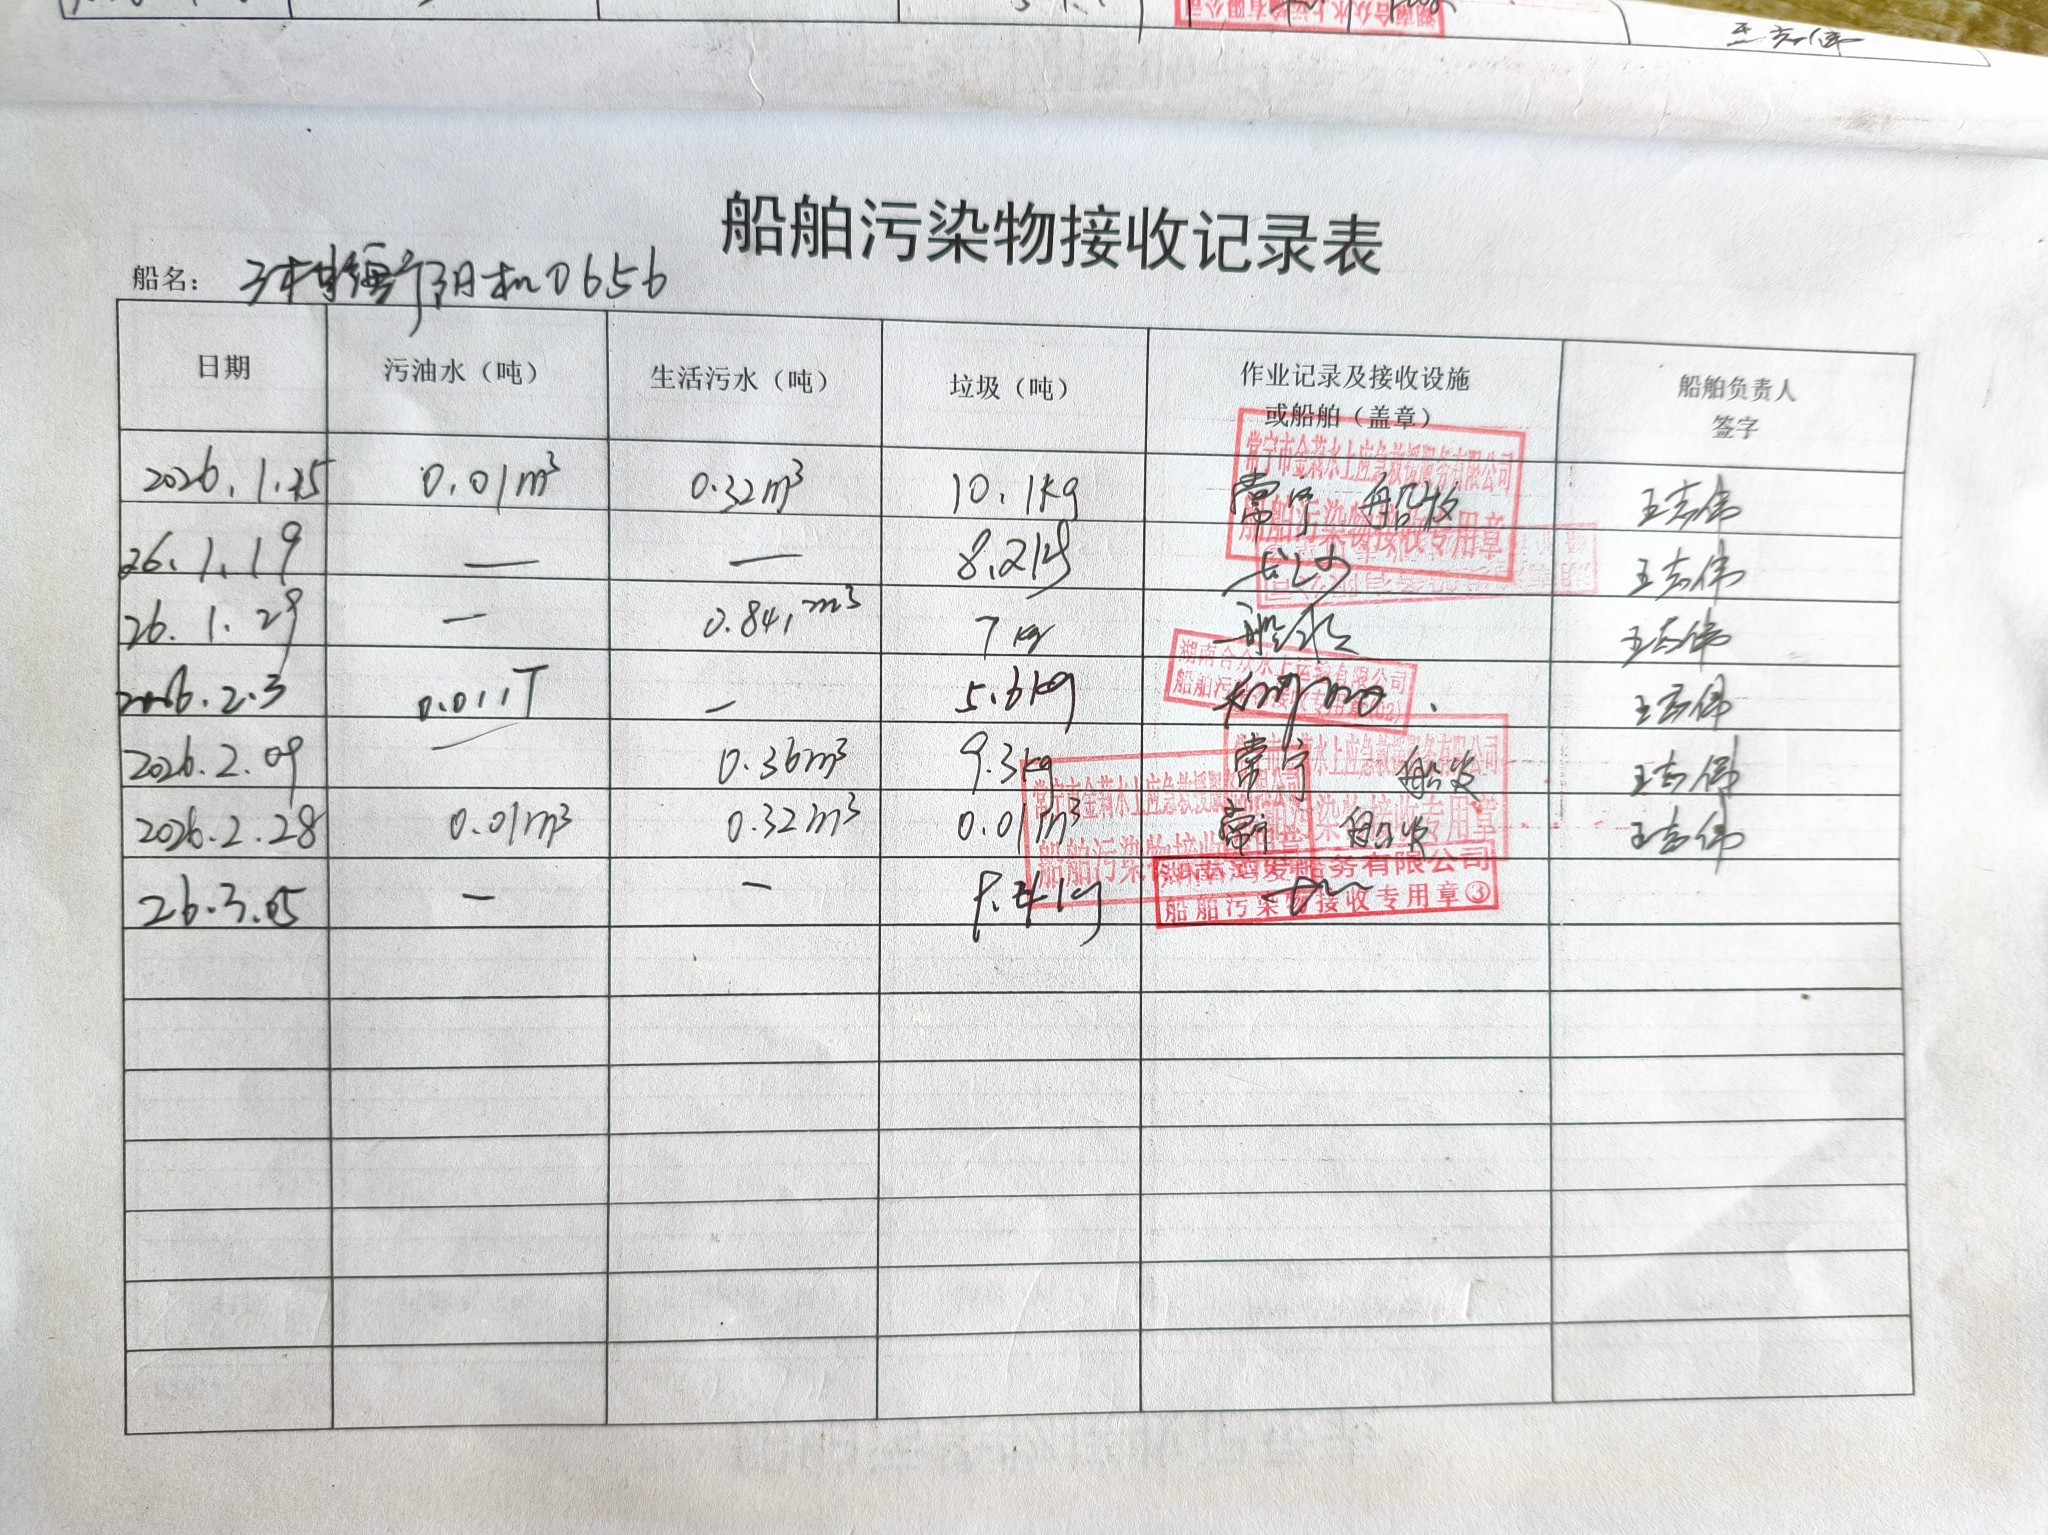 王志伟
船舶污染物接收记录表
船名： 阴机0656
日期 污油水（吨） 生活污水（吨） 垃圾（吨） 作业记录及接收设施或船舶（盖章） 船舶负责人签字
2026.1.15 0.01m³ 0.32m³ 10.1kg 常宁 船收 王志伟
26.1.19 — — 8.2kg 长沙 王志伟
26.1.29 — 0.841m³ 7kg 王志伟
2026.2.3 0.011T — 5.6kg 王志伟
2026.2.09 — 0.36m³ 9.3kg 常宁 船收 王志伟
2026.2.28 0.01m³ 0.32m³ 0.01m³ 常宁 船收 王志伟
26.3.05 — —
常宁市金蒴水上应急救援服务有限公司
船舶污染物接收专用章
湖南合众水上运输有限公司
船舶污染物接收专用章(02)
常宁市金蒴水上应急救援服务有限公司
船舶污染物接收专用章
常宁市金蒴水上应急救援服务有限公司
船舶污染物接收专用章
湖南鸿发船务有限公司
船舶污染物接收专用章③